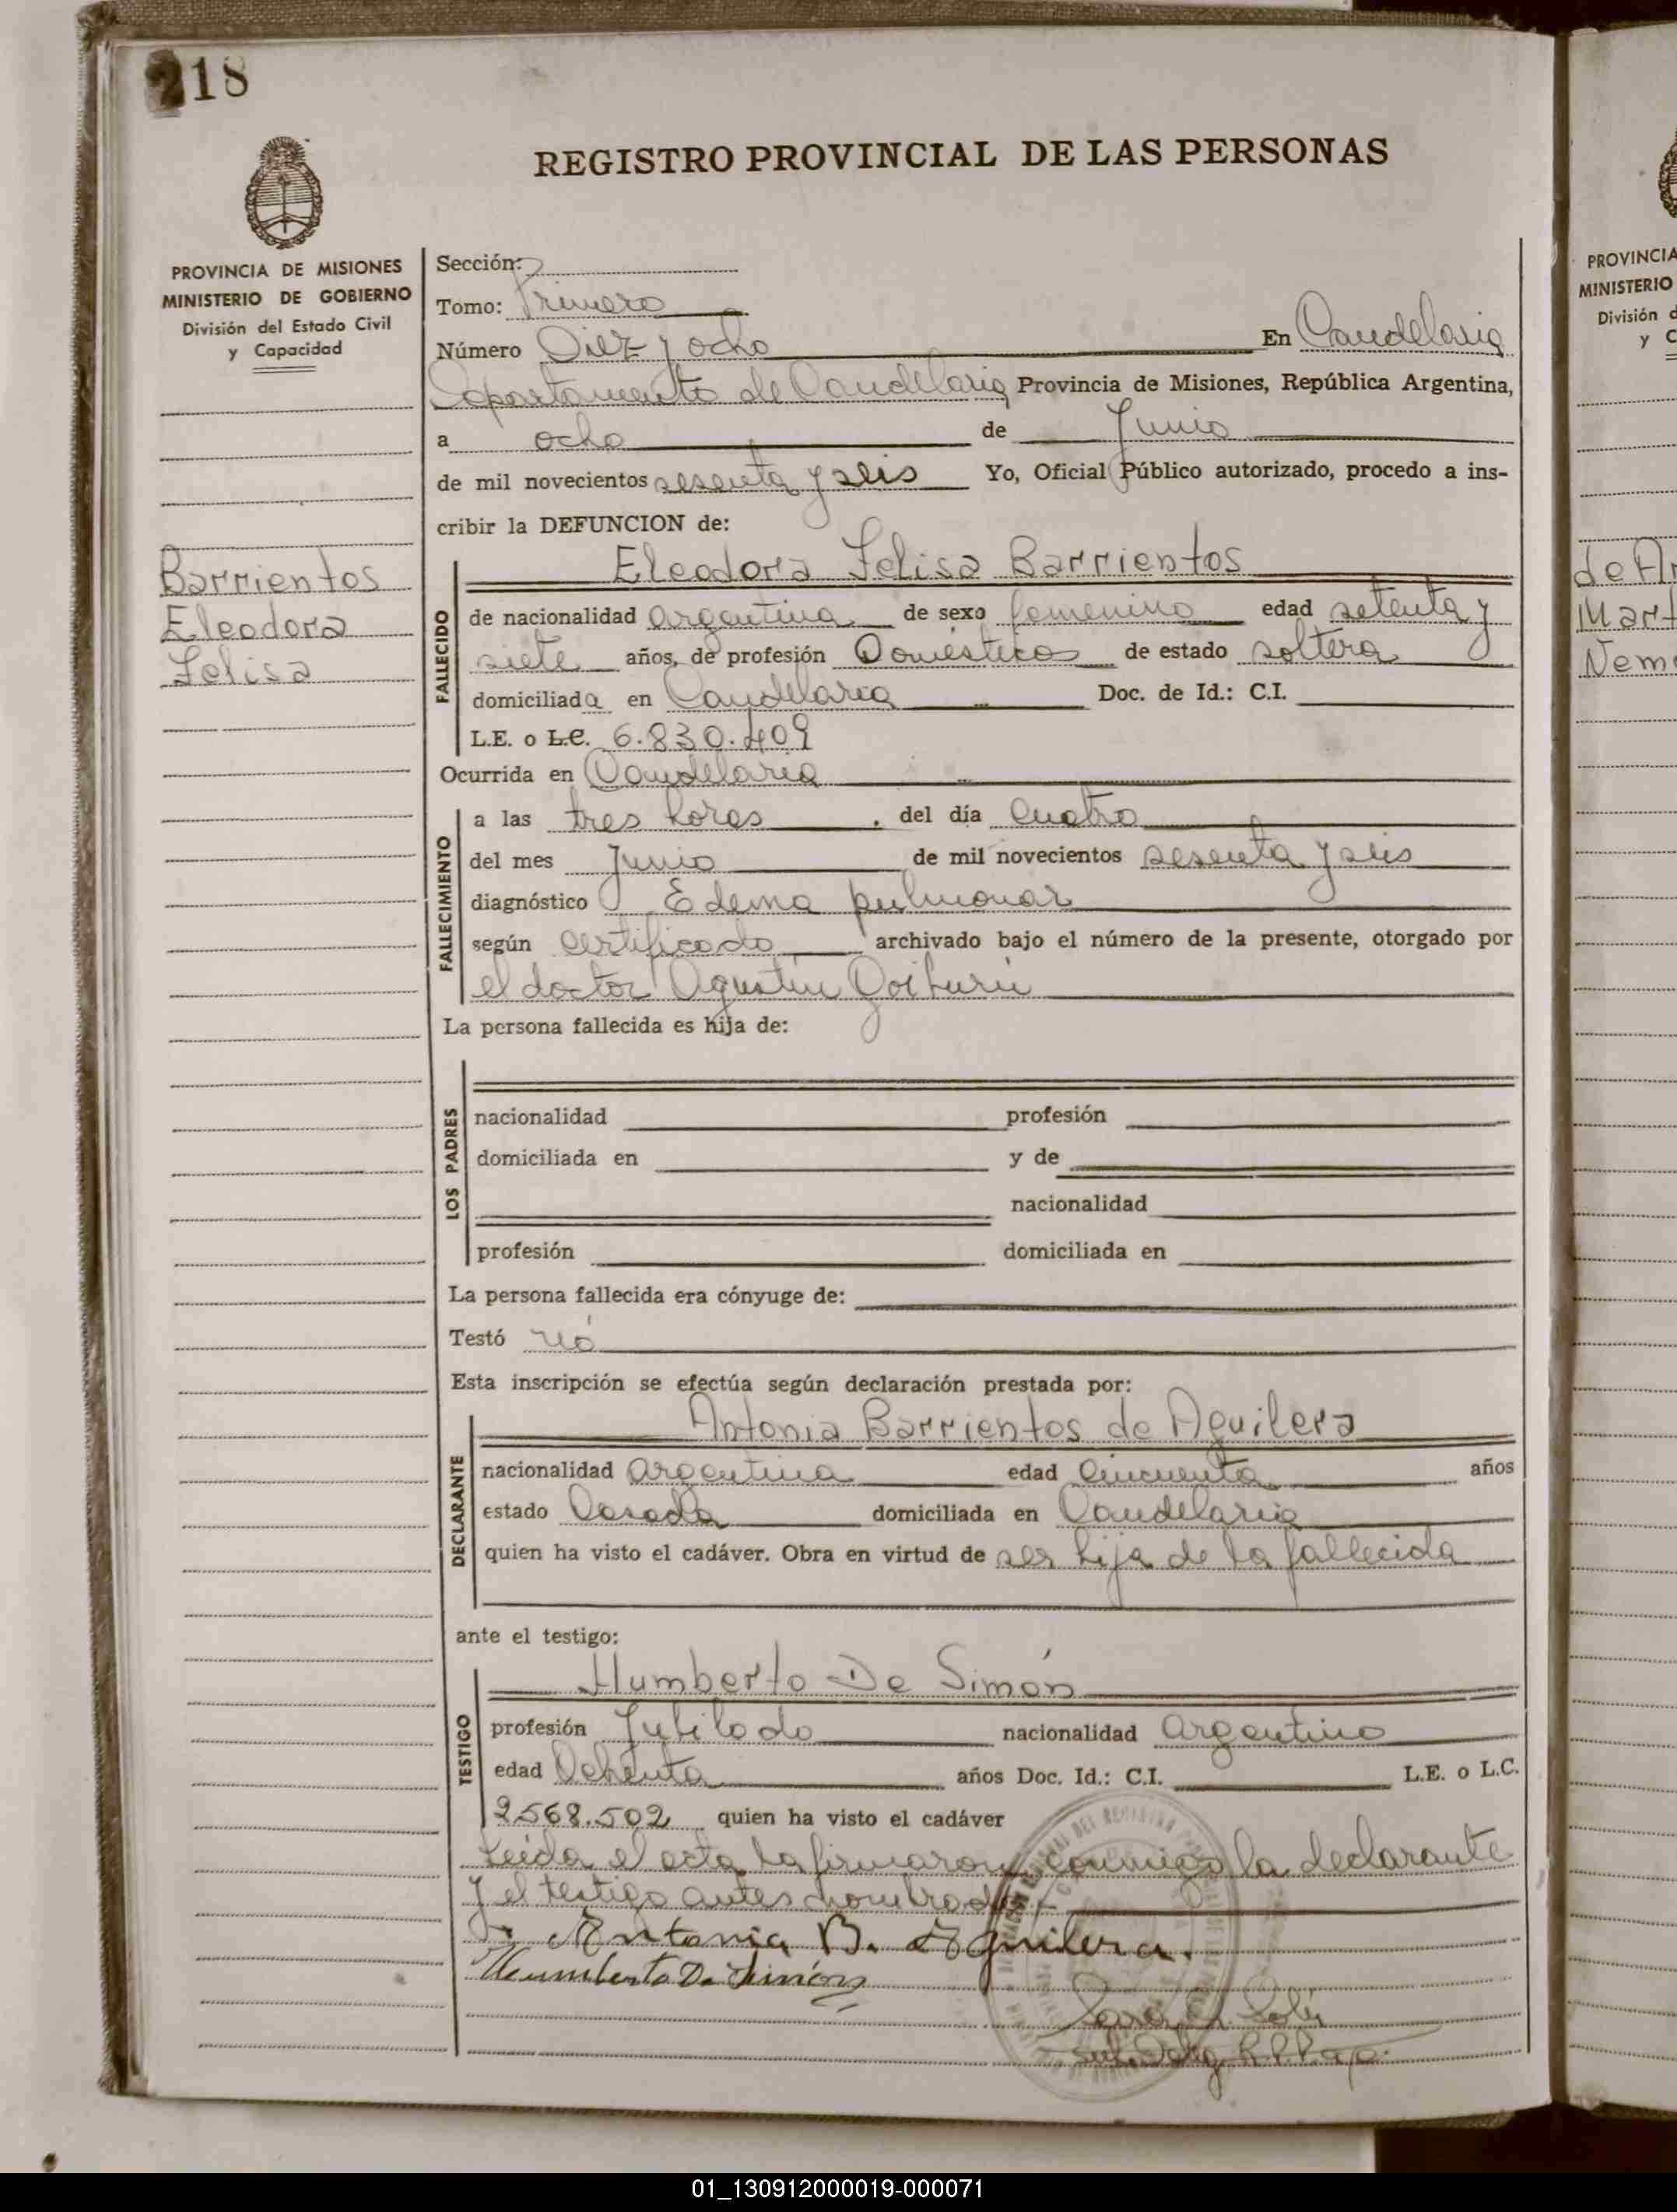 218
REGISTRO PROVINCIAL DE LAS PERSONAS
PROVINCIA DE MISIONES
MINISTERIO DE GOBIERNO
División del Estado Civil
y Capacidad
Barrientos
Eleodora
Felisa
Sección:
Tomo: Primero
Número Diez y ocho En Candelaria
Departamento de Candelaria Provincia de Misiones, República Argentina,
a ocho de Junio
de mil novecientos sesenta y seis Yo, Oficial Público autorizado, procedo a ins-
cribir la DEFUNCION de:
Eleodora Felisa Barrientos
FALLECIDO
de nacionalidad argentina de sexo femenino edad setenta y
siete años, de profesión Domésticos de estado soltera
domiciliada en Candelaria Doc. de Id.: C.I.
L.E. o L.C. 6.830.409
Ocurrida en Candelaria
FALLECIMIENTO
a las tres horas, del día cuatro
del mes Junio de mil novecientos sesenta y seis
diagnóstico Edema pulmonar
según certificado archivado bajo el número de la presente, otorgado por
el doctor Agustín Goiburú
La persona fallecida es hija de:
LOS PADRES
nacionalidad profesión
domiciliada en y de
nacionalidad
profesión domiciliada en
La persona fallecida era cónyuge de:
Testó nó
Esta inscripción se efectúa según declaración prestada por:
Antonia Barrientos de Aguilera
DECLARANTE
nacionalidad argentina edad Cincuenta años
estado Casada domiciliada en Candelaria
quien ha visto el cadáver. Obra en virtud de ser hija de la fallecida
ante el testigo:
Humberto De Simón
TESTIGO
profesión Jubilado nacionalidad argentino
edad Ochenta años Doc. Id.: C.I. L.E. o L.C.
2568.502 quien ha visto el cadáver
Leída el acta la firmaron conmigo la declarante
y el testigo antes nombrados
Antonia B. Aguilera.
Humberto De Simón
PROVINCIA
MINISTERIO
División d
y C
de A
Mart
Nem
01_130912000019-000071